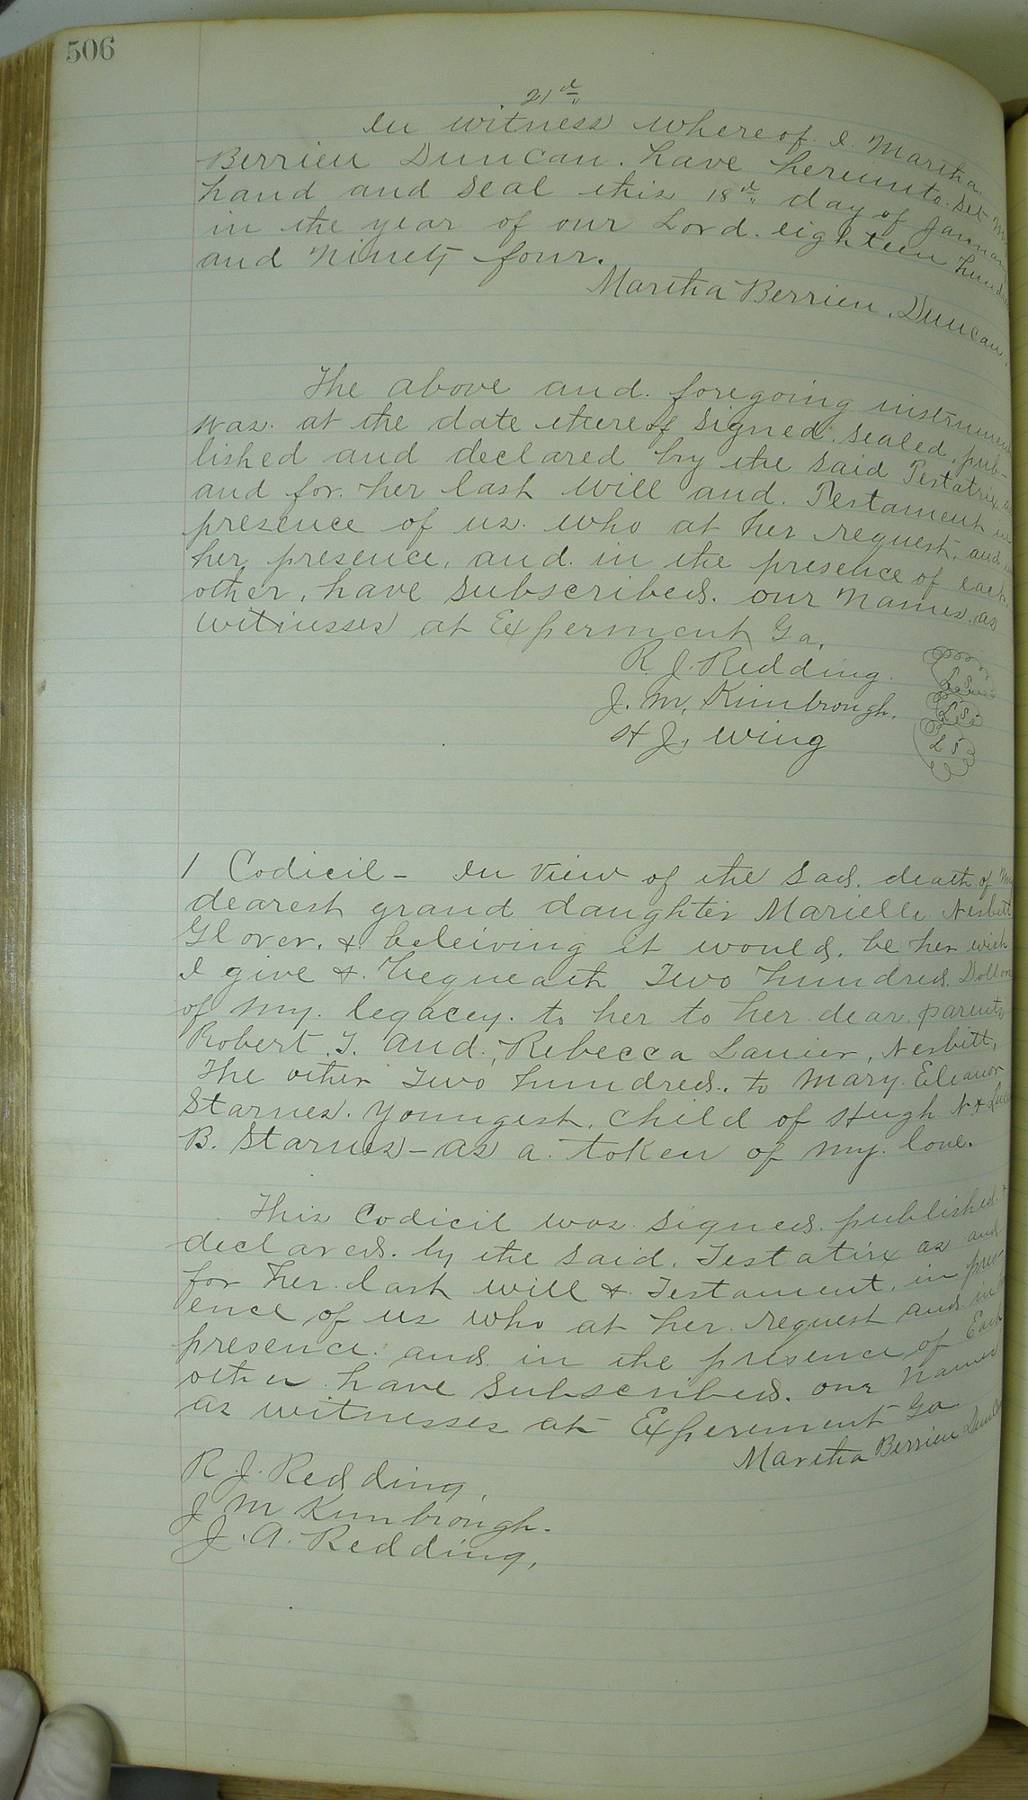 506
21st
In witness whereof. I. Martha
Berrien Duncan. have hereunto. set
hand and seal this 18th day of January
in the year of our Lord. eighteen hundred
and Ninety four.
Martha Berrien. Duncan.
The above and. foregoing instrument
was. at the date thereof signed. sealed, pub-
lished and declared by the said Testatrix as
and for. her last will and. Testament in
presence of us. who at her request, and in
her presence, and. in the presence of each
other, have subscribed. our names. as
witnesses at Experment Ga.
R. J. Redding. L.S.
J. M. Kimbrough. L.S.
H J. Wing L S
1 Codicil - In view of the sad. death of my
dearest grand daughter Marielle Nesbitt
Glover. & beleiving it would. be her wish
I give &. bequeath Two hundred. Dollars
of my. legacey. to her to her dear parents
Robert. T. and. Rebecca Lanier, Nesbitt.
The other Two hundred. to Mary Eleanor
Starnes. Youngest. child of Hugh N &
B. Starnes - as a. token of my. love.
This Codicil was. signed. published. &
declared. by the said. Testatrix as and
for her last will & Testament. in pres-
ence of us who at her request and in
presence. and. in the presence of Each
other have subscribed. our names
as witnesses at Experement Ga
Martha Berrien Duncan
R J. Redding.
J M Kimbrough.
J. A. Redding.